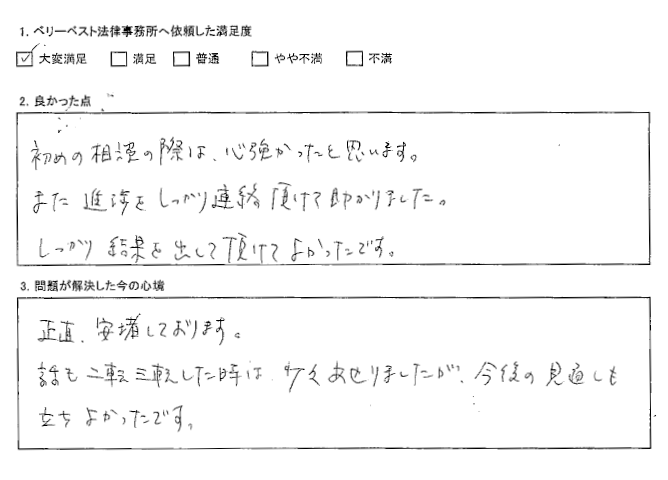 1. ベリーベスト法律事務所へ依頼した満足度
☑ 大変満足 □ 満足 □ 普通 □ やや不満 □ 不満
2. 良かった点
初めの相談の際は、心強かったと思います。
また進捗をしっかり連絡頂けて助かりました。
しっかり結果を出して頂けてよかったです。
3. 問題が解決した今の心境
正直、安堵しております。
話も二転三転した時は少々あせりましたが、今後の見通しも
立ちよかったです。